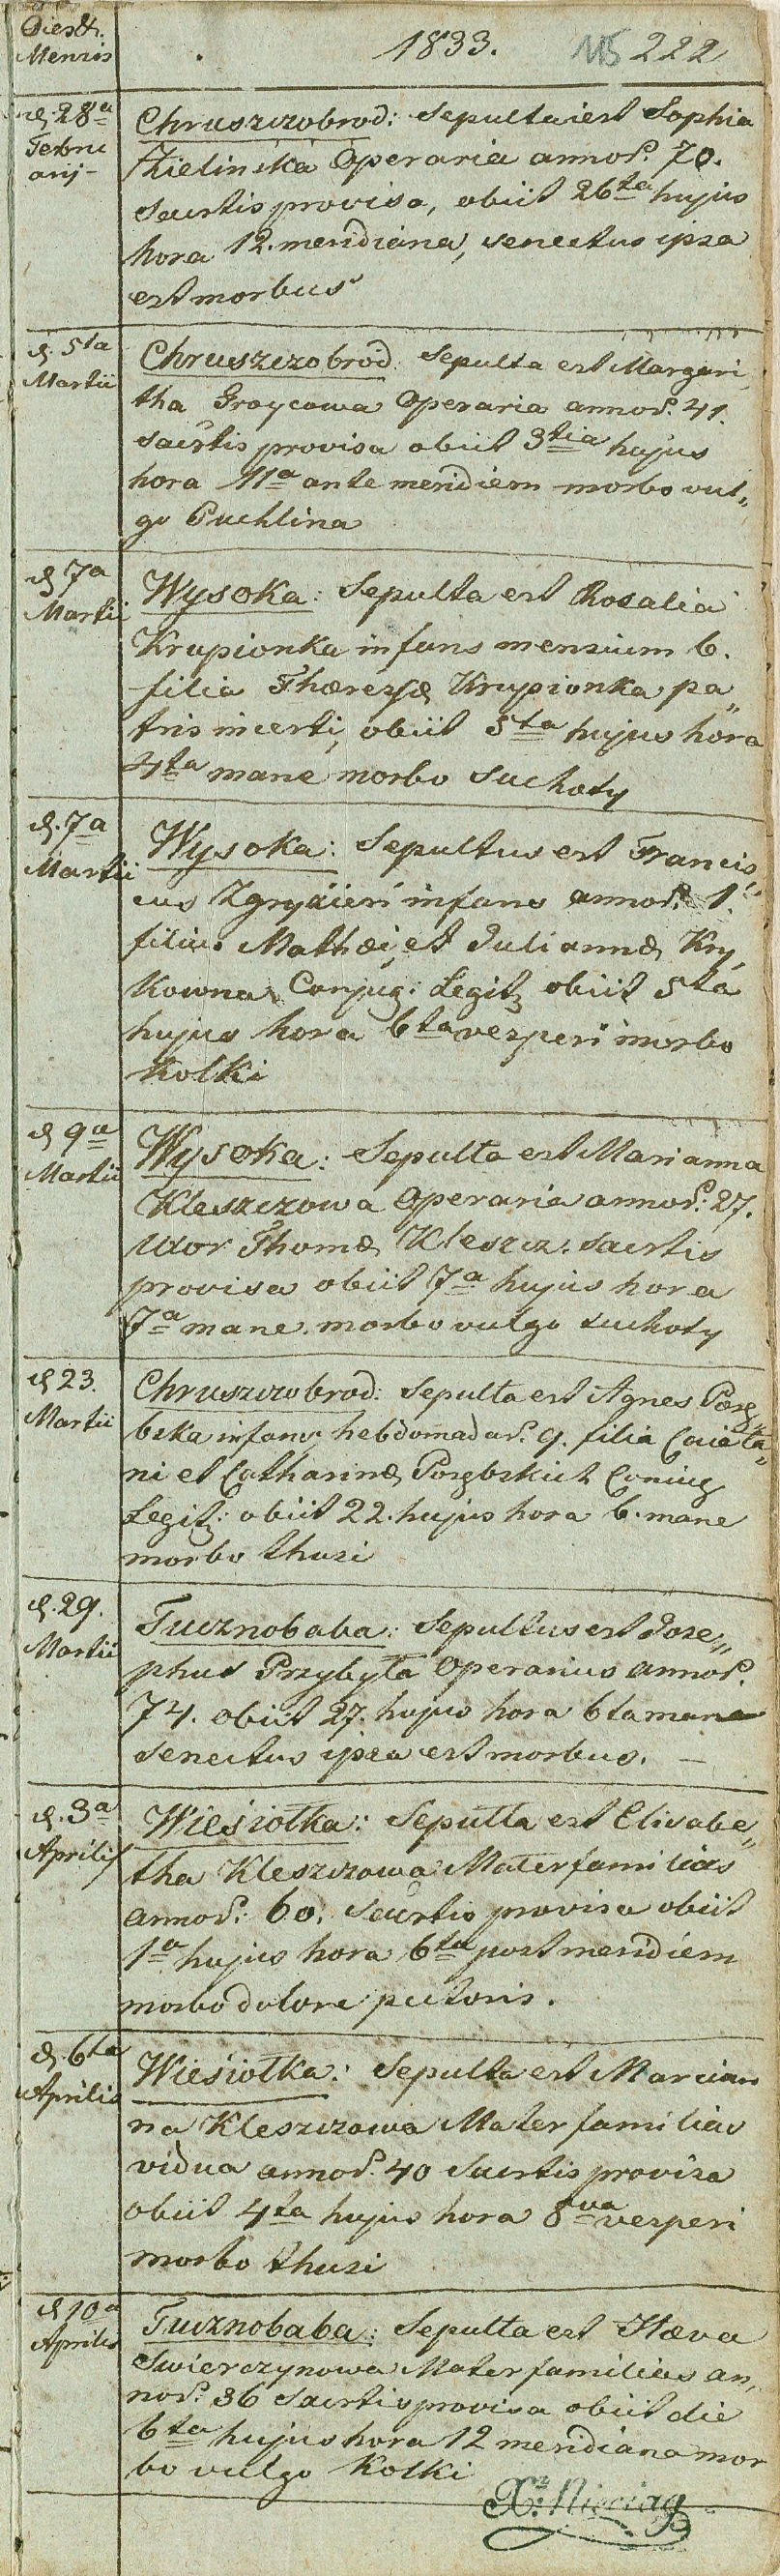 Dies &
Mensis
1833. 115 222
d. 28a
Februarij
Chruszczobrod: Sepulta est Sophia
Zielinska Operaria annor. 70.
Sacrtis provisa, obiit 26ta hujus
hora 12. meridiana, senectus ipsa
est morbus
d. 5ta
Martii
Chruszczobrod: Sepulta est Margari
tha Graycowa Operaria annor. 41.
sacrtis provisa obiit 3tia hujus
hora 11a ante meridiem morbo vul„
go Puchlina
d 7a
Martii
Wysoka: Sepulta est Rosalia
Krupionka infans mensium 6.
filia Thæresæ Krupionka pa„
tris incerti, obiit 5ta hujus hora
4ta mane morbo Suchoty
d. 7a
Martii
Wysoka: Sepultus est Francis„
cus Zgryzień infans annor. 1.
filius Mathæi et Juliannæ Kry
kowna Conjug: Legit obiit 5ta
hujus hora 6ta vesperi morbo
Kolki
d 9a
Martii
Wysoka: Sepulta est Marianna
Kleszczowa Operaria annor: 27.
Uxor Thomæ Kleszcz. Sacrtis
provisa obiit 7a hujus hora
7a mane. morbo vulgo suchoty
d 23.
Martii
Chruszczobrod: Sepulta est Agnes Porę„
bska infans hebdomadar. 9. filia Caieta„
ni et Catharinæ Porębskich Coniug
Legit: obiit 22. hujus hora 6. mane
morbo thusi
d. 29.
Martii
Tucznobaba: Sepultus est Jose„
phus Przybyła Operarius annor.
74. obiit 27. hujus hora 6ta mane
senectus ipsa est morbus. —
d. 3a
Aprilis
Wiesiołka: Sepulta est Elisabe„
tha Kleszczowa Materfamilias
annor: 60. Sacrtis provisa obiit
1a hujus hora 6ta post meridiem
morbo dolore pectoris.
d. 6ta
Aprilis
Wiesiołka: Sepulta est Marian
na Kleszczowa Mater familias
vidua annor. 40 Sacrtis provisa
obiit 4ta hujus hora 8va vesperi
morbo thusi
d 10a
Aprilis
Tucznobaba: Sepulta est Hæva
Swierczynowa Mater familias an„
nor. 36 Sacrtis provisa obiit die
6ta hujus hora 12 meridiana mor
bo vulgo Kolki